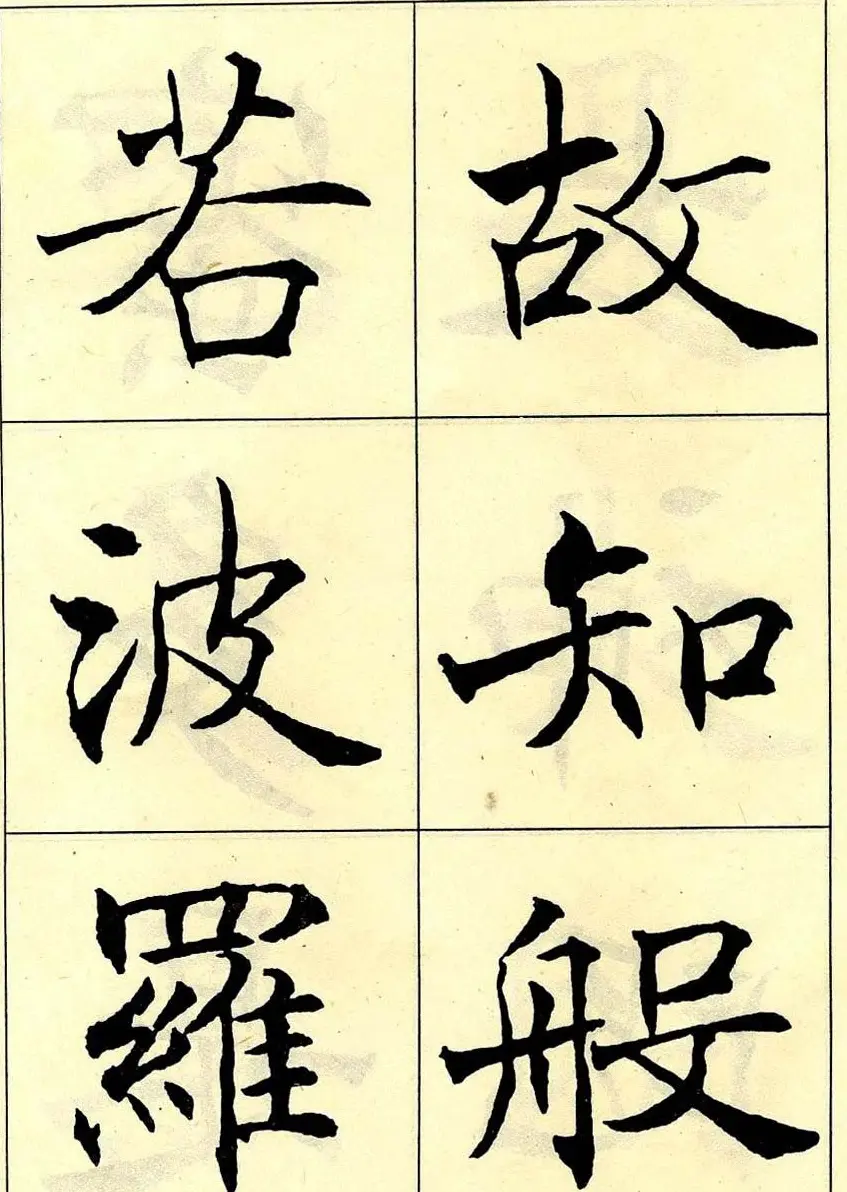 故知般
若波羅